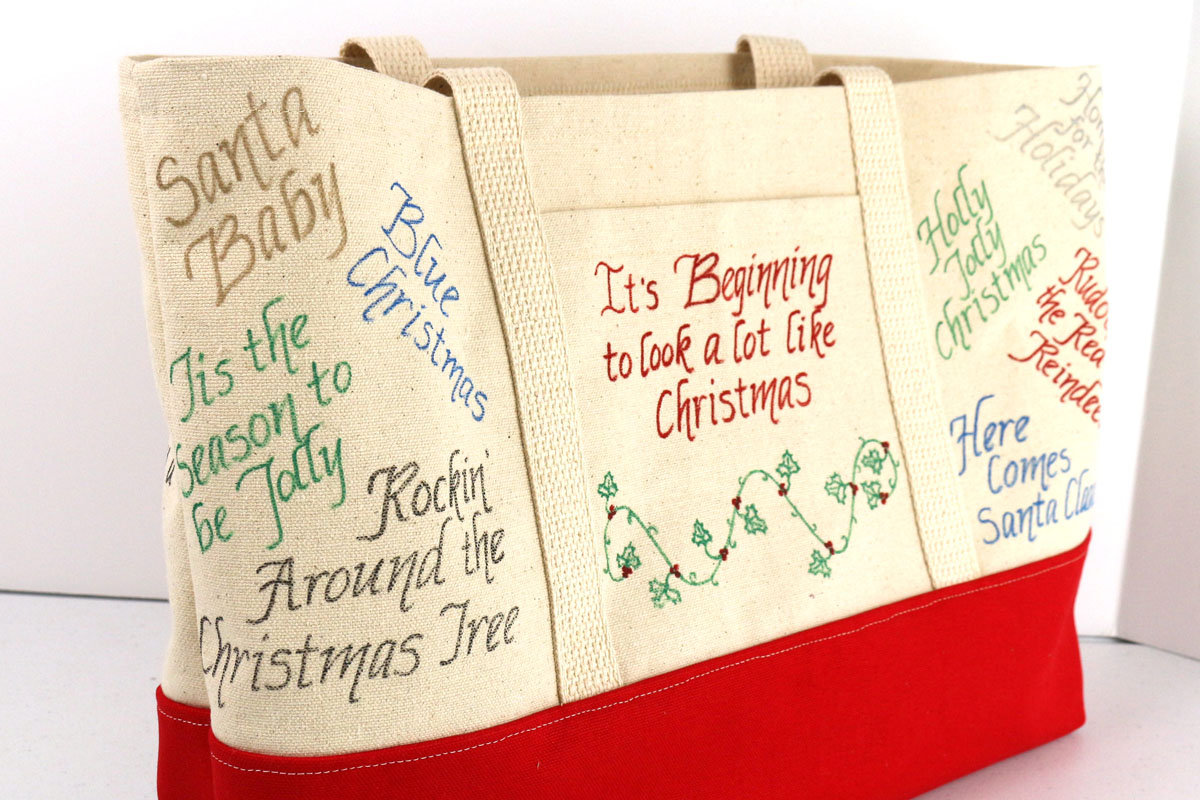 Santa
Baby
Blue
Christmas
Tis the
Season to
be Jolly
Rockin'
Around the
Christmas Tree
It's Beginning
to look a lot like
Christmas
Holidays
Holly
Jolly
Christmas
the
Here
Comes
Santa